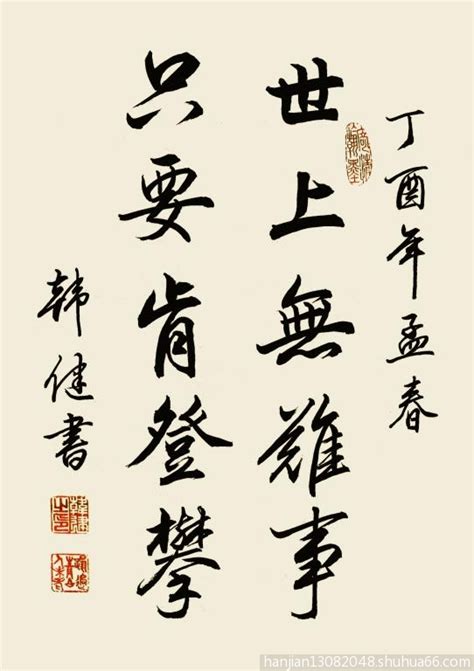 丁酉年孟春
世上無難事
只要肯登攀
韩健書
hanjian13082048.shuhua66.com